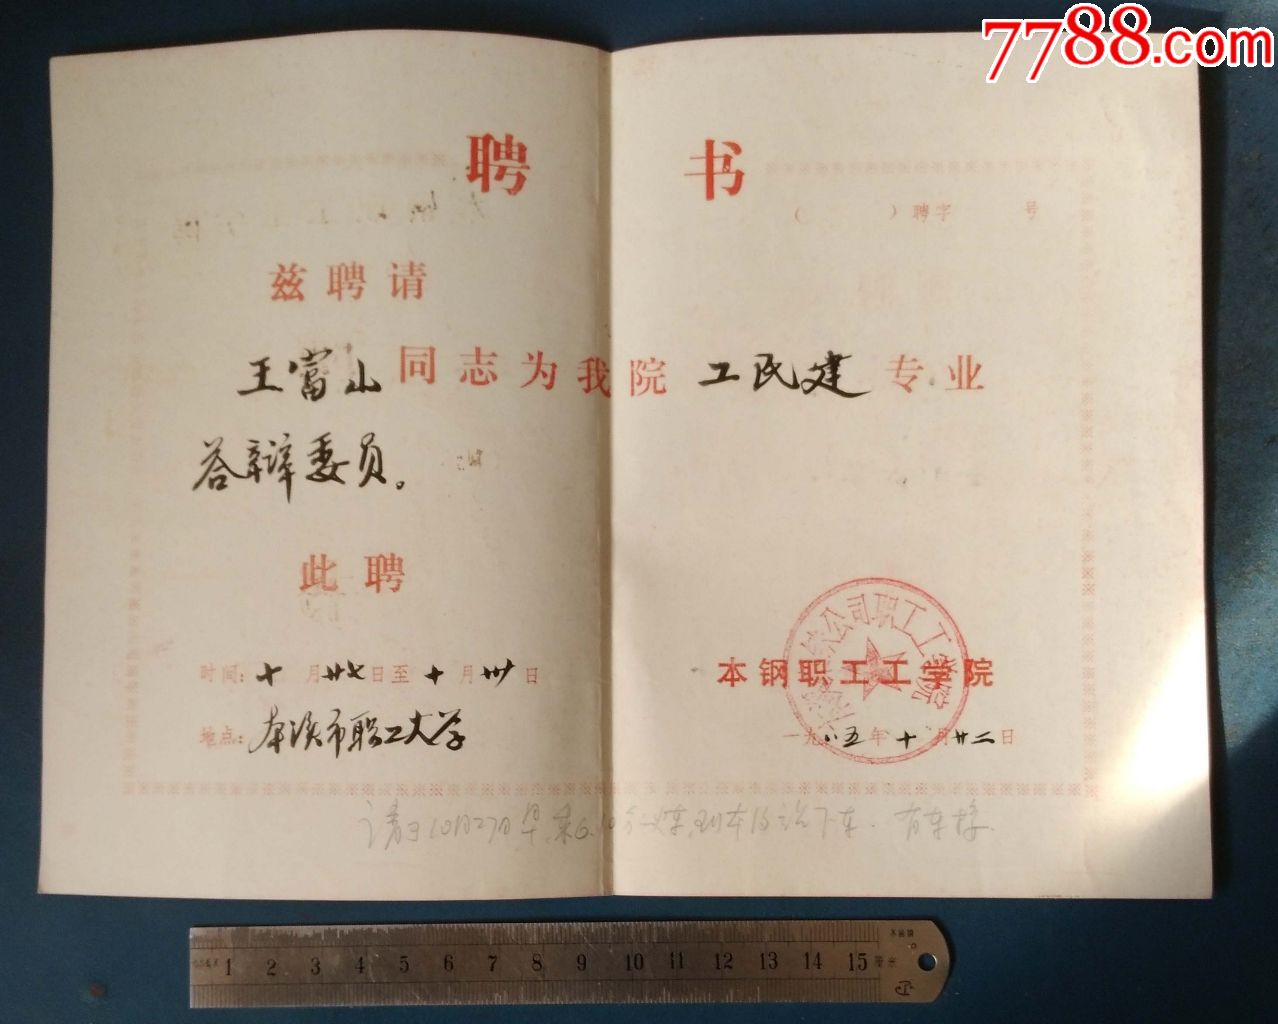 7788.com
聘 书
( ) 聘字 号
兹聘请
王富山同志为我院工民建专业
答辩委员。
此聘
时间:十月廿七日至十月卅日
地点:本溪市职工大学
本钢职工工学院
一九八五年十月廿二日
公司职工工学院
请于10月27日早,乘6.10分火车,到本溪站下车.有车接.
1 2 3 4 5 6 7 8 9 10 11 12 13 14 15 厘米